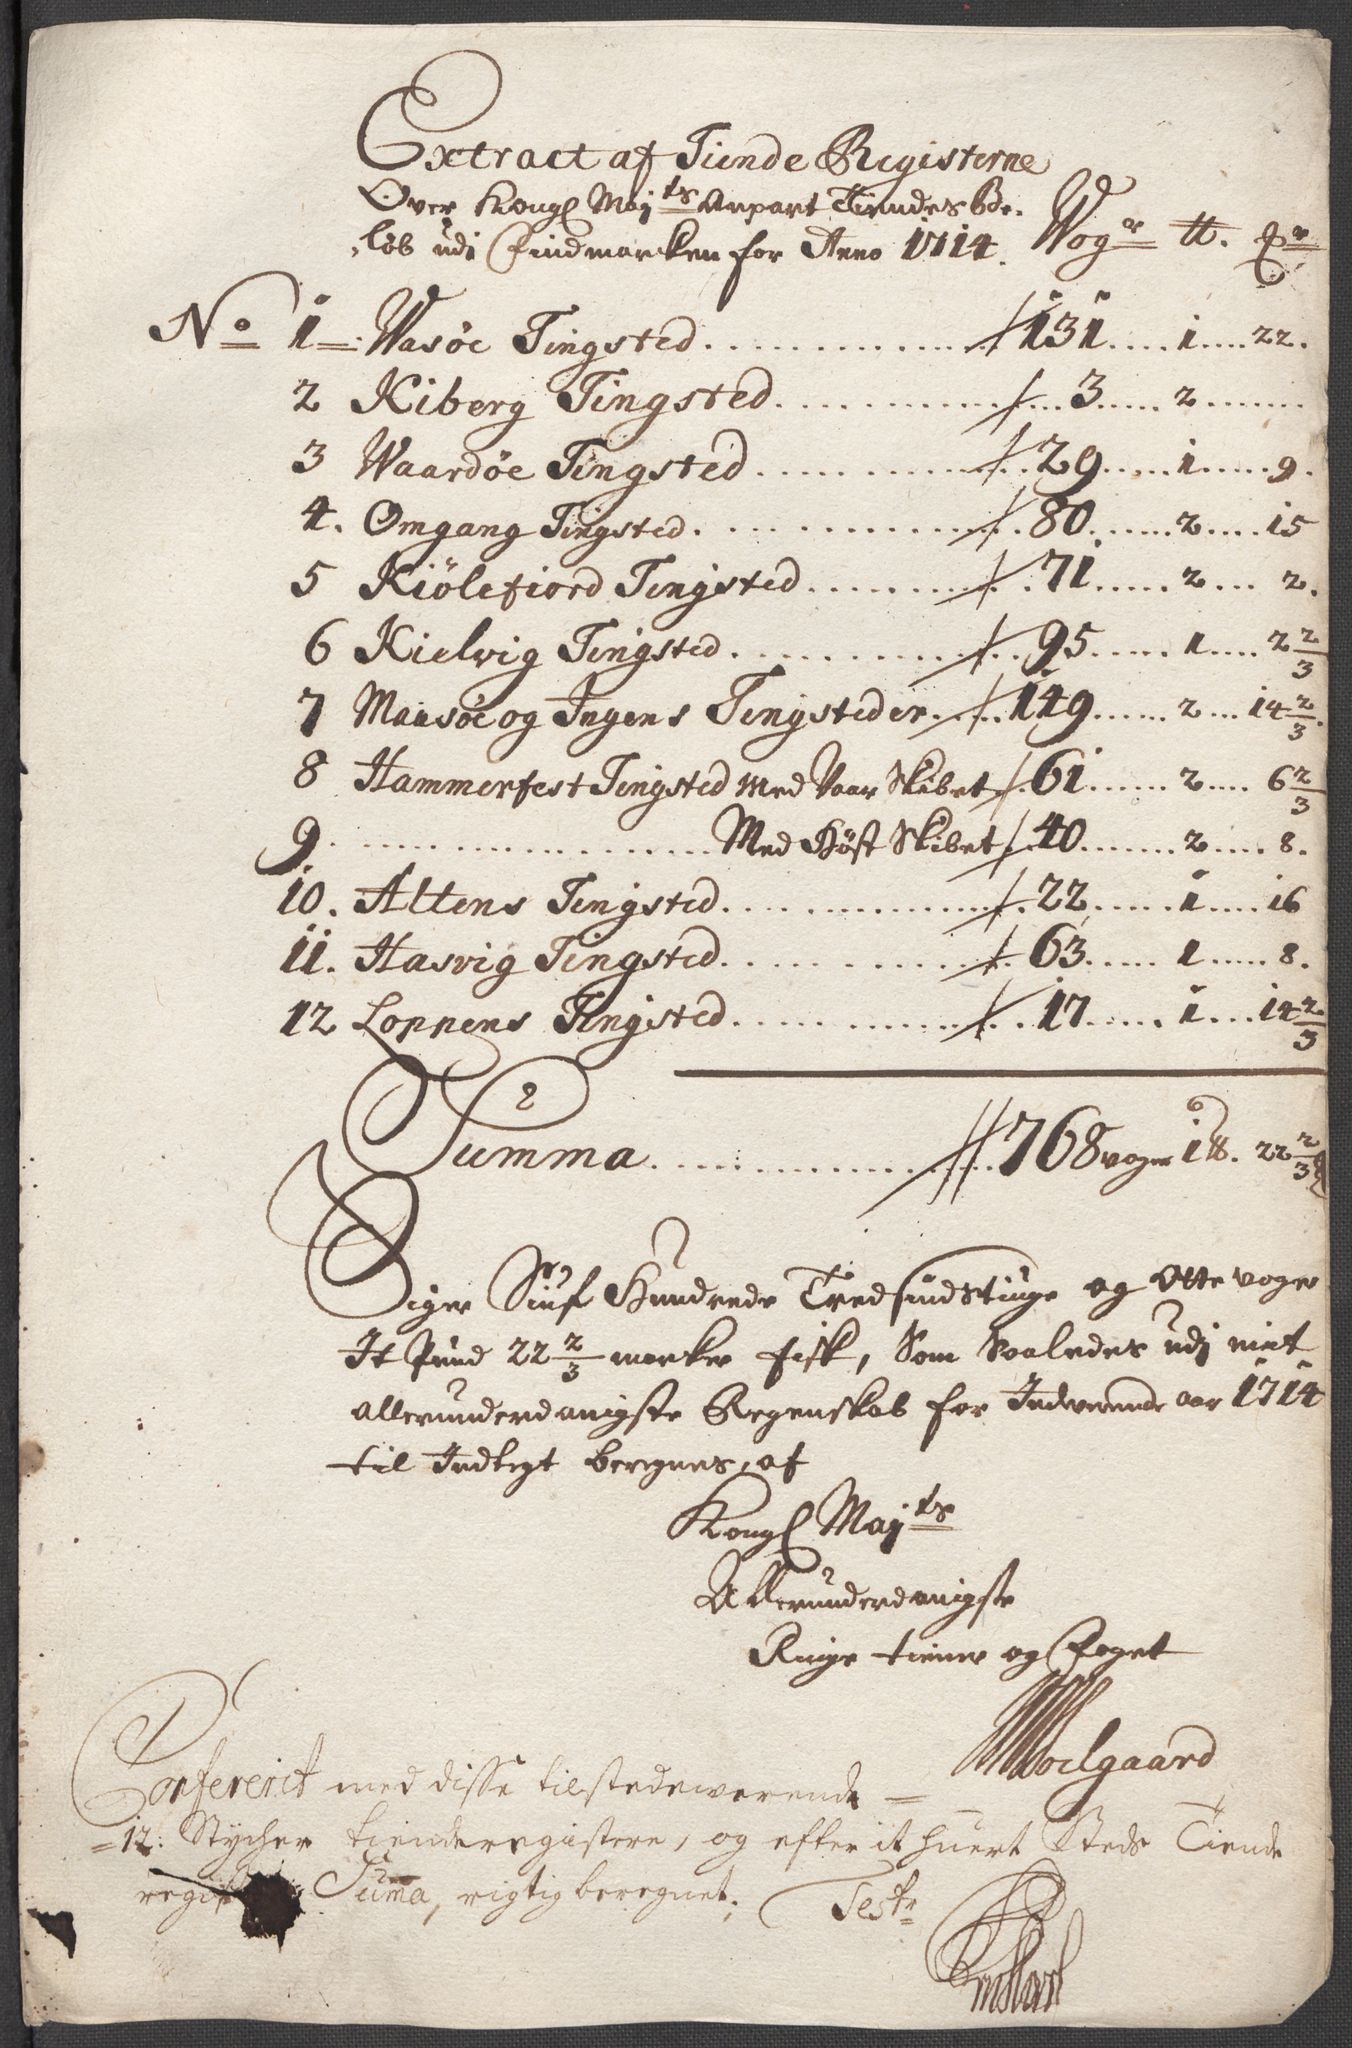 Extract af Tiende Registerne
Over Kongl Maj ts Anpart Tiendes Be¬
¬løb udj Findmarcken for Anno 1714. Wog r ℔. ₰ r
No 1 Wasöe Tingsted 131 1 22.
2 Kiberg Tingsted 3 2
3 Waardöe Tingsted 29 1 9.
4. Omgang Tingsted 80 2 15
5 Kiölefiord Tingsted 71 2 2.
6 Kielvig Tingsted 95 1 2 2/3
7 Maasöe og Ingens Tingsteder 149 2 14 2/3.
8 Hammerfest Tingsted Med Vaar Skibet 61 2 6 2/3
9 Med Höst Skibet 40 2 8.
10. Altens Tingsted 22 1 16
11. Hasvig Tingsted 63 1 8.
12 Loppens Tingsted 17 1 14 2/3
Summa 768 voger 1 ℔. 22 2/3
Siger Siuf Hundrede Tredsindstiuge og Otte voger
It Pund 22 2/3 marker fisk, Som Saaledes udj mit
allerunderdanigste Regenskab for Indverende aar 1714
til Indtegt beregnes, af
Kongl Maj ts
Allerunderdanigste
Ringe tiener og Foget
Soelgaard
Confererit med disse tilstedewerende
12. Stycher tienderegistere, og efter it huert Steds Tiende
Suma, rigtig beregnet,
Test